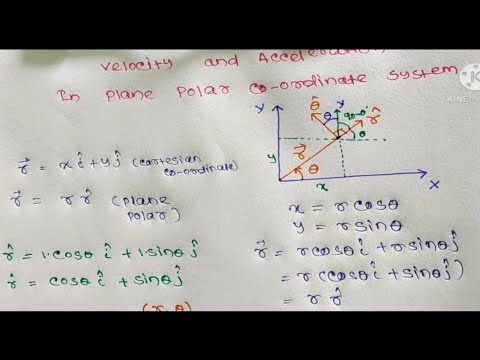 Velocity and Acceleration
In plane polar co-ordinate system
KINE
r⃗ = xî + yĵ (cartesian
co-ordinate)
r⃗ = r r̂ (plane
polar)
r̂ = 1·cosθ î + 1·sinθ ĵ
r̂ = cosθ î + sinθ ĵ
(r, θ)
Y
θ̂
y
90-θ
r̂
θ
θ
r⃗
y
θ
x
X
x = r cosθ
y = r sinθ
r⃗ = r cosθ î + r sinθ ĵ
= r (cosθ î + sinθ ĵ)
= r r̂